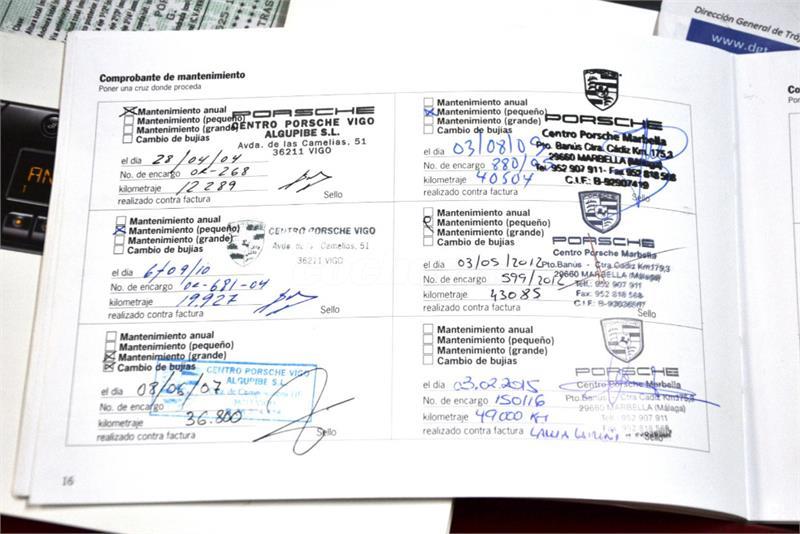 Dirección General de Tráf
www.dgt
AN
Comprobante de mantenimiento
Poner una cruz donde proceda
Mantenimiento anual
Mantenimiento (pequeño)
Mantenimiento (grande)
Cambio de bujías
PORSCHE
CENTRO PORSCHE VIGO
ALGUPIBE S.L.
Avda. de las Camelias, 51
36211 VIGO
el día 28/04/04
No. de encargo OR-268
kilometraje 12289
realizado contra factura
Sello
Mantenimiento anual
Mantenimiento (pequeño)
Mantenimiento (grande)
Cambio de bujías
CENTRO PORSCHE VIGO
Avda. Camelias, 51
36211 VIGO
el día 6/09/10
No. de encargo OR-681-04
kilometraje 19,927
realizado contra factura
Sello
Mantenimiento anual
Mantenimiento (pequeño)
Mantenimiento (grande)
Cambio de bujías
CENTRO PORSCHE VIGO
ALGUPIBE S.L.
el día 08/05/07
No. de encargo
kilometraje 36.800
realizado contra factura
Sello
Mantenimiento anual
Mantenimiento (pequeño)
Mantenimiento (grande)
Cambio de bujías
PORSCHE
Centro Porsche Marbella
Pto. Banús Ctra. Cádiz Km. 175,3
29660 MARBELLA (Málaga)
Tel. 952 907 911- Fax 952 818 568
C.I.F.: B-92907419
el día 03/08/09
No. de encargo 880/
kilometraje 40504
realizado contra factura
Sello
Mantenimiento anual
Mantenimiento (pequeño)
Mantenimiento (grande)
Cambio de bujías
PORSCHE
Pto.Banús - Ctra Cádiz Km175,3
29660 MARBELLA (Málaga)
Telf.: 952 907 911
Fax: 952 818 568
el día 03/05/2012
No. de encargo 599/2012
kilometraje 43085
realizado contra factura
Sello
Mantenimiento anual
Mantenimiento (pequeño)
Mantenimiento (grande)
Cambio de bujías
PORSCHE
Centro Porsche Marbella
Pto.Banús - Ctra Cádiz Km175,3
29660 MARBELLA (Málaga)
952 907 911
952 818 568
el día 03.02.2015
No. de encargo 150116
kilometraje 49000 KM
realizado contra factura
Sello
16